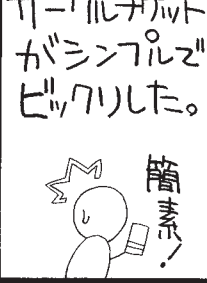 がシンプルで
ビックリした。
簡素！